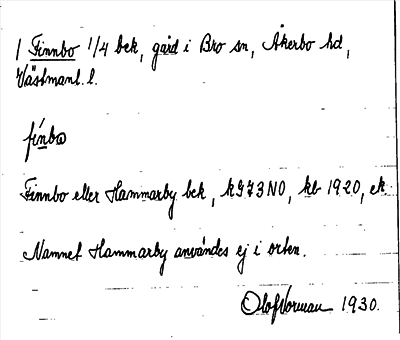 1 Finnbo 1/4 bek, gård i Bro sn, Åkerbo hd,
Västmanl. l.
finbω
Finnbo eller Hammarby bek, kG73NO, kb 1920, ek
Namnet Hammarby användes ej i orten.
Olof Norman 1930.